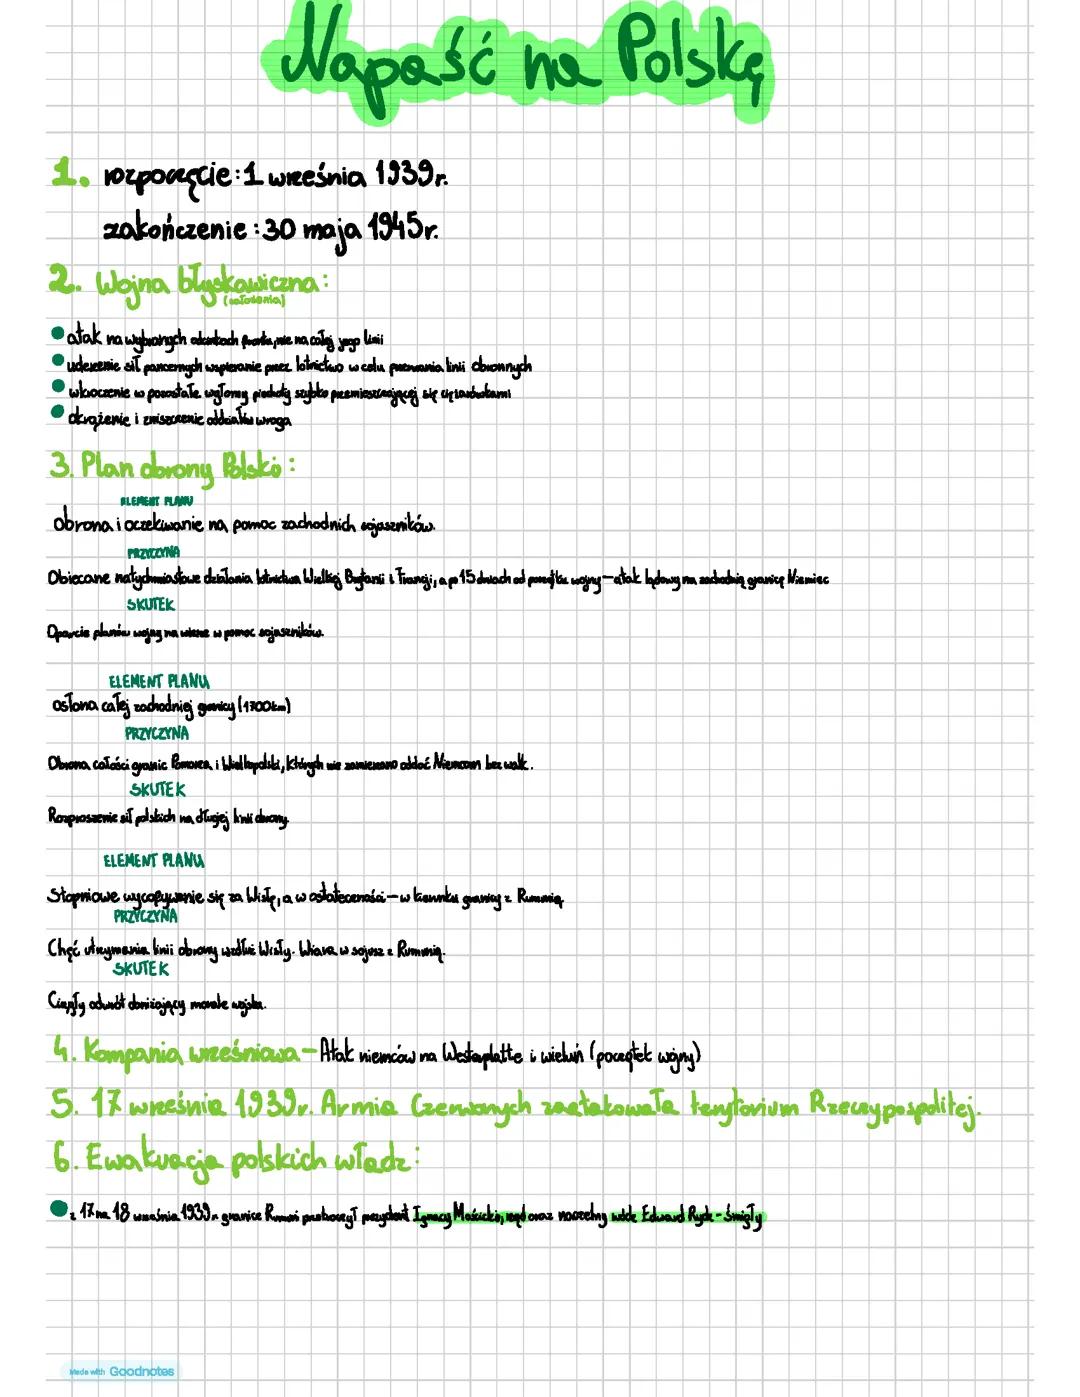 Napaść na Polskę
1. rozpoczęcie: 1 września 1939r.
zakończenie: 30 maja 1945r.
2. Wojna błyskawiczna:
(założenia)
atak na wybranych odcinkach frontu, nie na całej jego linii
uderzenie sił pancernych wspieranie przez lotnictwo w celu przerwania linii obronnych
wkroczenie w pozostałe wyłomy piechoty szybko przemieszczającej się ciężarówkami
okrążenie i zniszczenie oddziałów wroga
3. Plan obrony Polski:
ELEMENT PLANU
Obrona i oczekiwanie na pomoc zachodnich sojuszników.
PRZYCZYNA
Obiecane natychmiastowe działania lotnictwa Wielkiej Brytanii i Francji, a po 15 dniach od początku wojny – atak lądowy na zachodnią granicę Niemiec
SKUTEK
Oparcie planów wojny na wierze w pomoc sojuszników.
ELEMENT PLANU
osłona całej zachodniej granicy (1700km)
PRZYCZYNA
Obrona całości granic Pomorza i Wielkopolski, których nie zamierzano oddać Niemcom bez walk.
SKUTEK
Rozproszenie sił polskich na długiej linii obrony.
ELEMENT PLANU
Stopniowe wycofywanie się za Wisłę, a w ostateczności – w kierunku granicy z Rumunią.
PRZYCZYNA
Chęć utrzymania linii obrony wzdłuż Wisły. Wiara w sojusz z Rumunią.
SKUTEK
Ciągły odwrót obniżający morale wojska.
4. Kampania wrześniowa – Atak niemców na Westerplatte i wieluń (początek wojny)
5. 17 września 1939r. Armia Czerwonych zaatakowała terytorium Rzeczypospolitej.
6. Ewakuacja polskich władz:
z 17 na 18 września 1939r. granice Rumuni przekroczył prezydent Ignacy Mościcki, rząd oraz naczelny wódz Edward Rydz-Śmigły
Made with Goodnotes